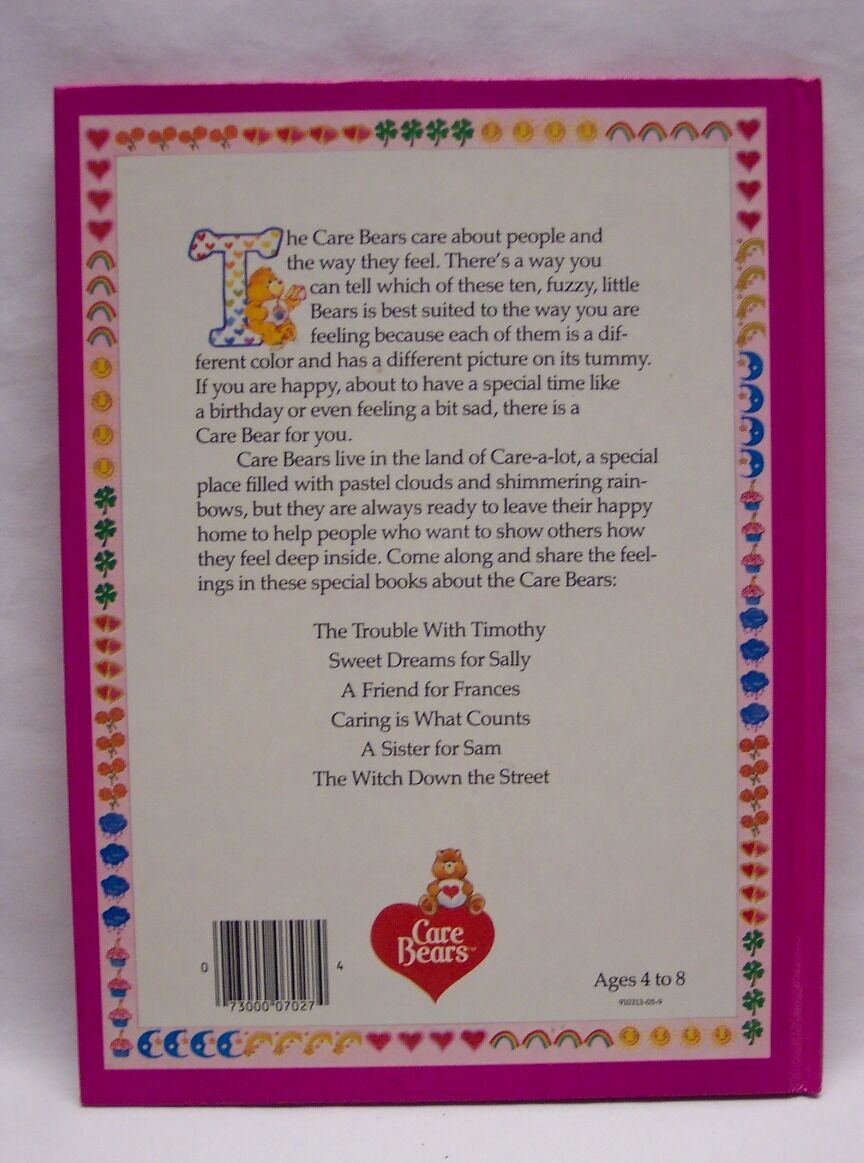 The Care Bears care about people and
the way they feel. There's a way you
can tell which of these ten, fuzzy, little
Bears is best suited to the way you are
feeling because each of them is a dif-
ferent color and has a different picture on its tummy.
If you are happy, about to have a special time like
a birthday or even feeling a bit sad, there is a
Care Bear for you.
Care Bears live in the land of Care-a-lot, a special
place filled with pastel clouds and shimmering rain-
bows, but they are always ready to leave their happy
home to help people who want to show others how
they feel deep inside. Come along and share the feel-
ings in these special books about the Care Bears:
The Trouble With Timothy
Sweet Dreams for Sally
A Friend for Frances
Caring is What Counts
A Sister for Sam
The Witch Down the Street
Care
Bears™
0 73000 07027 4
Ages 4 to 8
910313-05-9